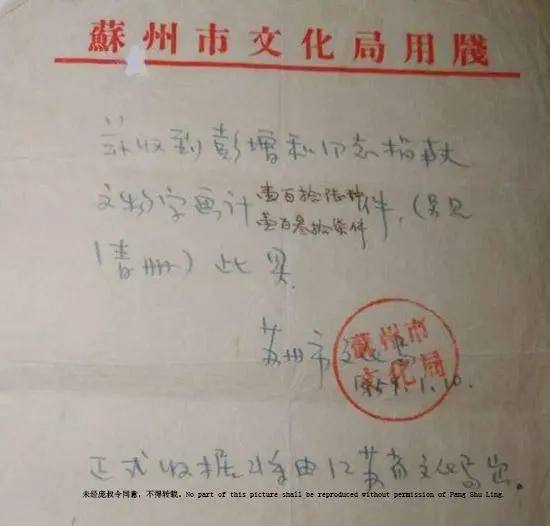 蘇州市文化局用牋
兹收到彭增和同志捐献
文物字画计壹百拾陆种件,(另见
壹百叁拾柒件
清册)此具
苏州市文化局
1959.1.10.
蘇州市
文化局
正式收据将由江苏省文化局出.
未经庞叔令同意,不得转载。No part of this picture shall be reproduced without permission of Pang Shu Ling.